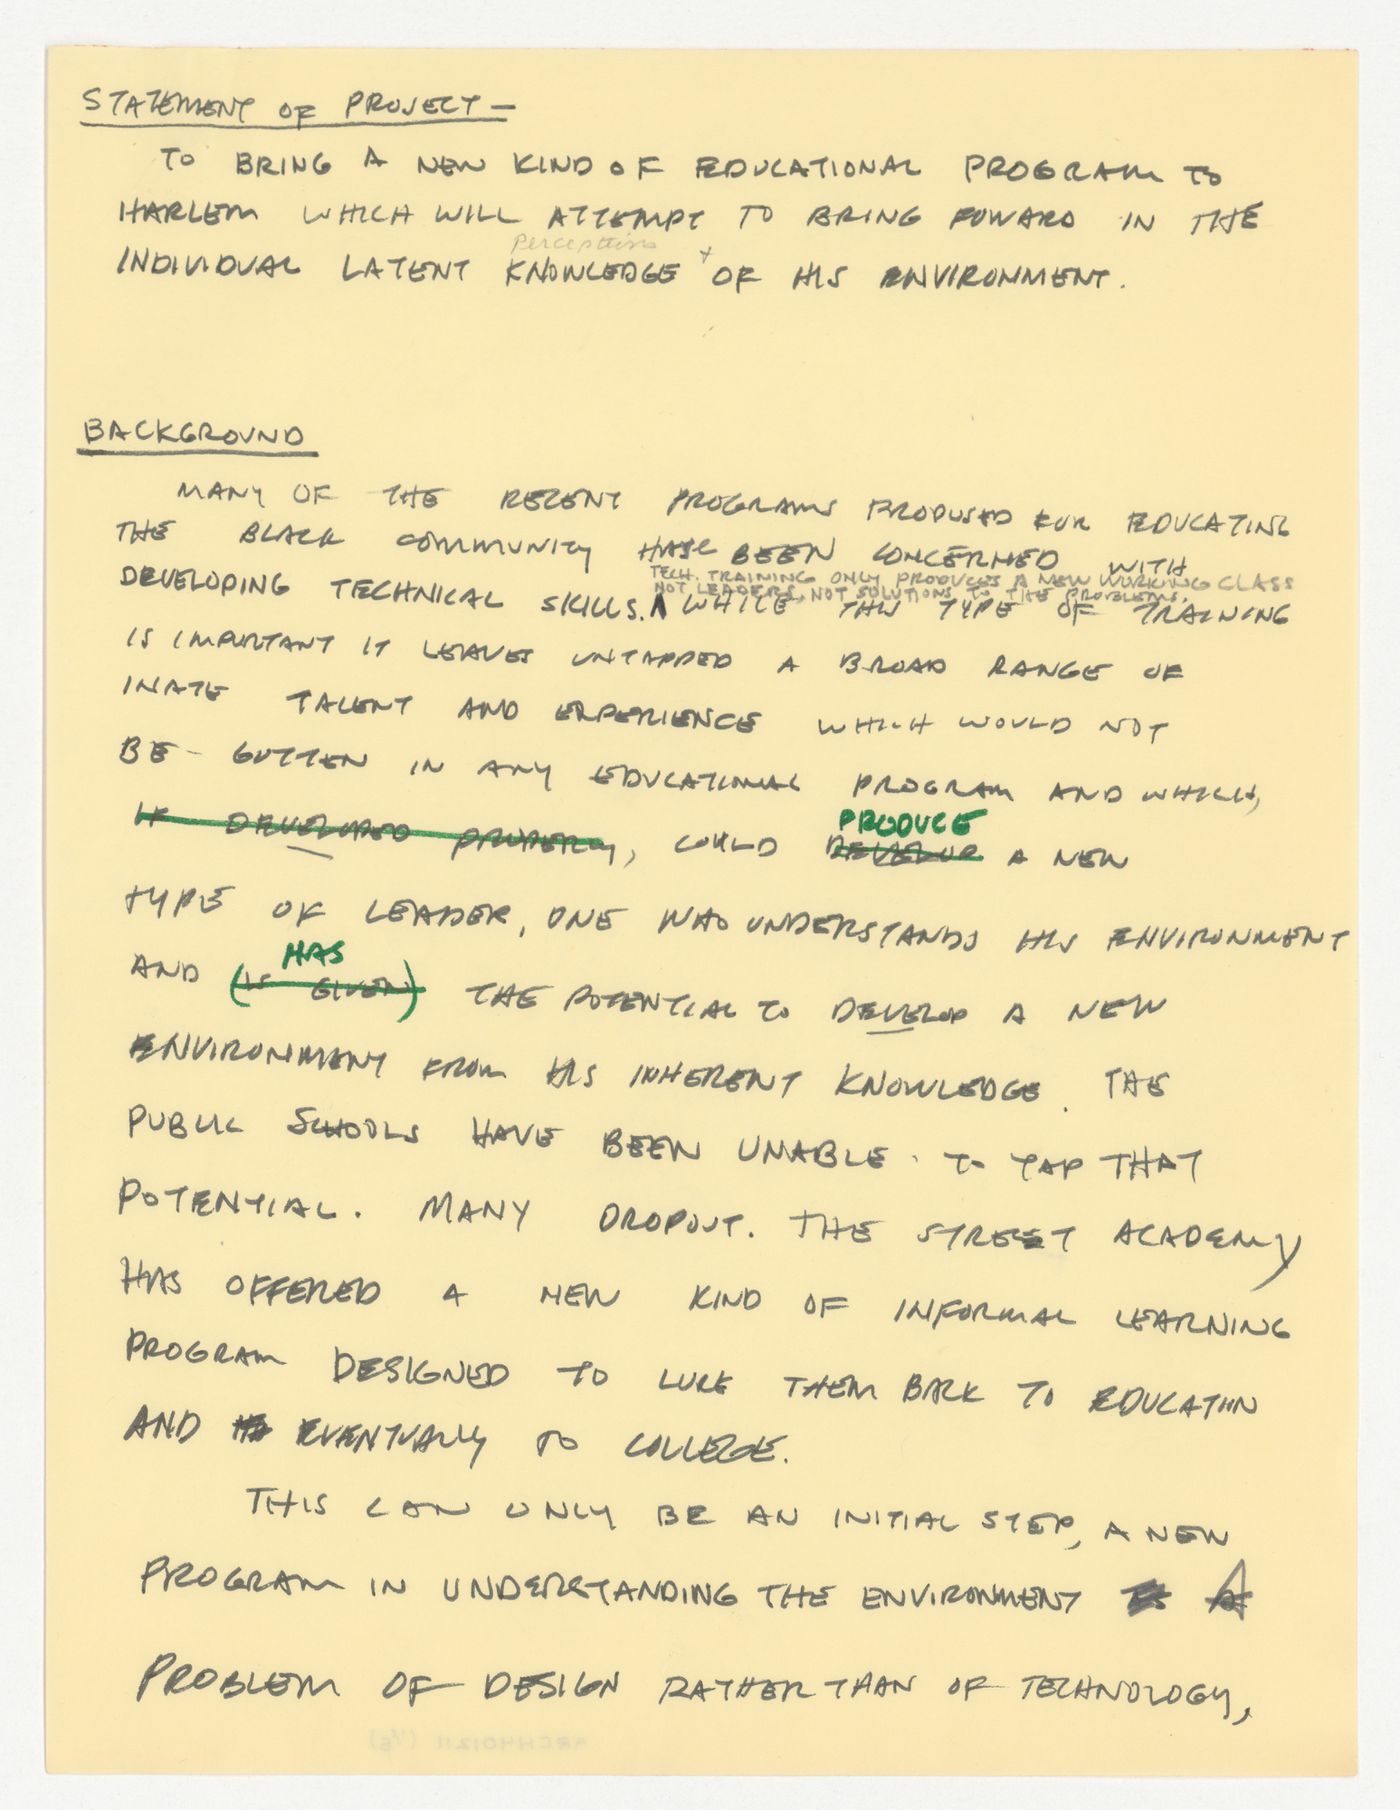 STATEMENT OF PROJECT —
TO BRING A NEW KIND OF EDUCATIONAL PROGRAM TO
HARLEM WHICH WILL ATTEMPT TO BRING FOWARD IN THE
perceptions +
INDIVIDUAL LATENT KNOWLEDGE OF HIS ENVIRONMENT.
BACKGROUND
MANY OF THE RECENT PROGRAMS PRODUSED FOR EDUCATING
THE BLACK COMMUNITY HAVE BEEN CONCERNED WITH
TECH. TRAINING ONLY PRODUCES A NEW WORKING CLASS
NOT LEADERS, NOT SOLUTIONS TO THE PROBLEMS.
DEVELOPING TECHNICAL SKILLS. WHILE THIS TYPE OF TRAINING
IS IMPORTANT IT LEAVES UNTAPPED A BROAD RANGE OF
INATE TALENT AND EXPERIENCE WHICH WOULD NOT
BE GOTTEN IN ANY EDUCATIONAL PROGRAM AND WHICH,
PRODUCE
IF DEVELOPED PROPERLY, COULD DEVELOP A NEW
TYPE OF LEADER, ONE WHO UNDERSTANDS HIS ENVIRONMENT
HAS
AND (IS GIVEN) THE POTENTIAL TO DEVELOP A NEW
ENVIRONMENT FROM HIS INHERENT KNOWLEDGE. THE
PUBLIC SCHOOLS HAVE BEEN UNABLE TO TAP THAT
POTENTIAL. MANY DROPOUT. THE STREET ACADEMY
HAS OFFERED A NEW KIND OF INFORMAL LEARNING
PROGRAM DESIGNED TO LURE THEM BACK TO EDUCATION
AND EVENTUALLY TO COLLEGE.
THIS CAN ONLY BE AN INITIAL STEP, A NEW
PROGRAM IN UNDERSTANDING THE ENVIRONMENT A
PROBLEM OF DESIGN RATHER THAN OF TECHNOLOGY,